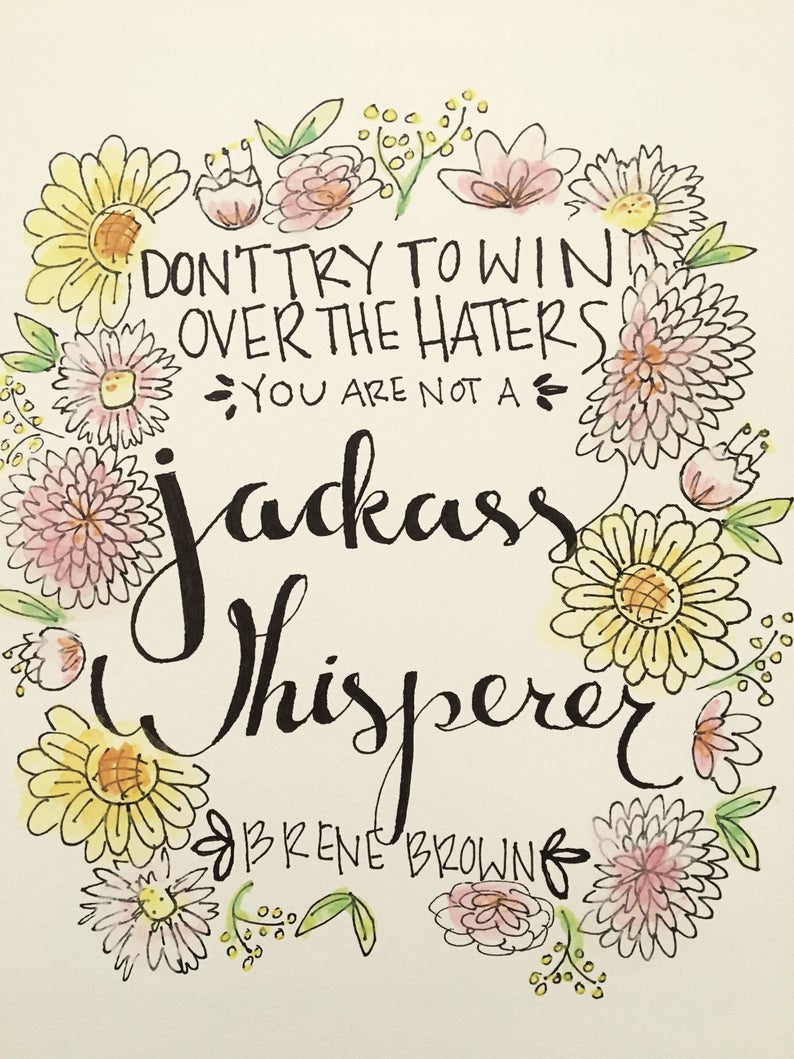 DON'T TRY TO WIN
OVER THE HATERS
YOU ARE NOT A
jackass
Whisperer
BRENE BROWN